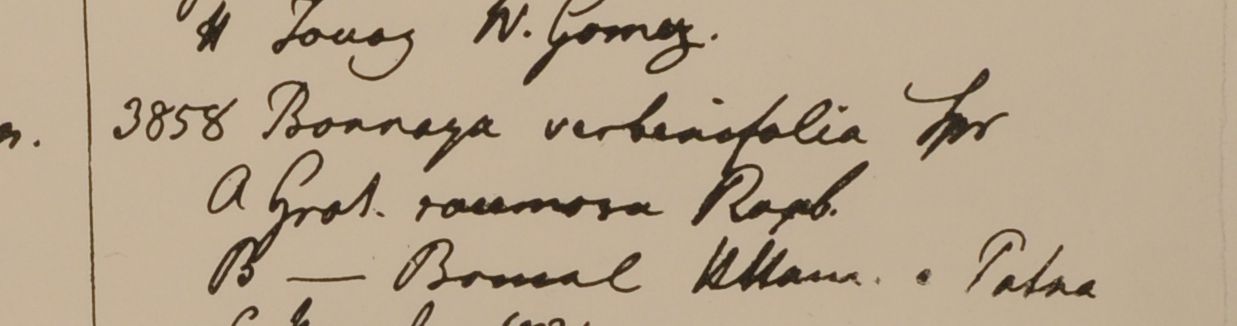 H Tavoy W. Gomez.
3858 Bonnaya verbenifolia Spr
A Grat. racemosa Roxb.
B — Herb. Ham. Patna